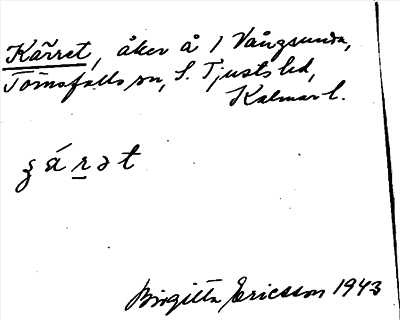 Kärret, åker å 1 Vångsunda,
Törnsfalls sn, S. Tjusts hd,
Kalmar l.
Birgitta Ericsson 1943